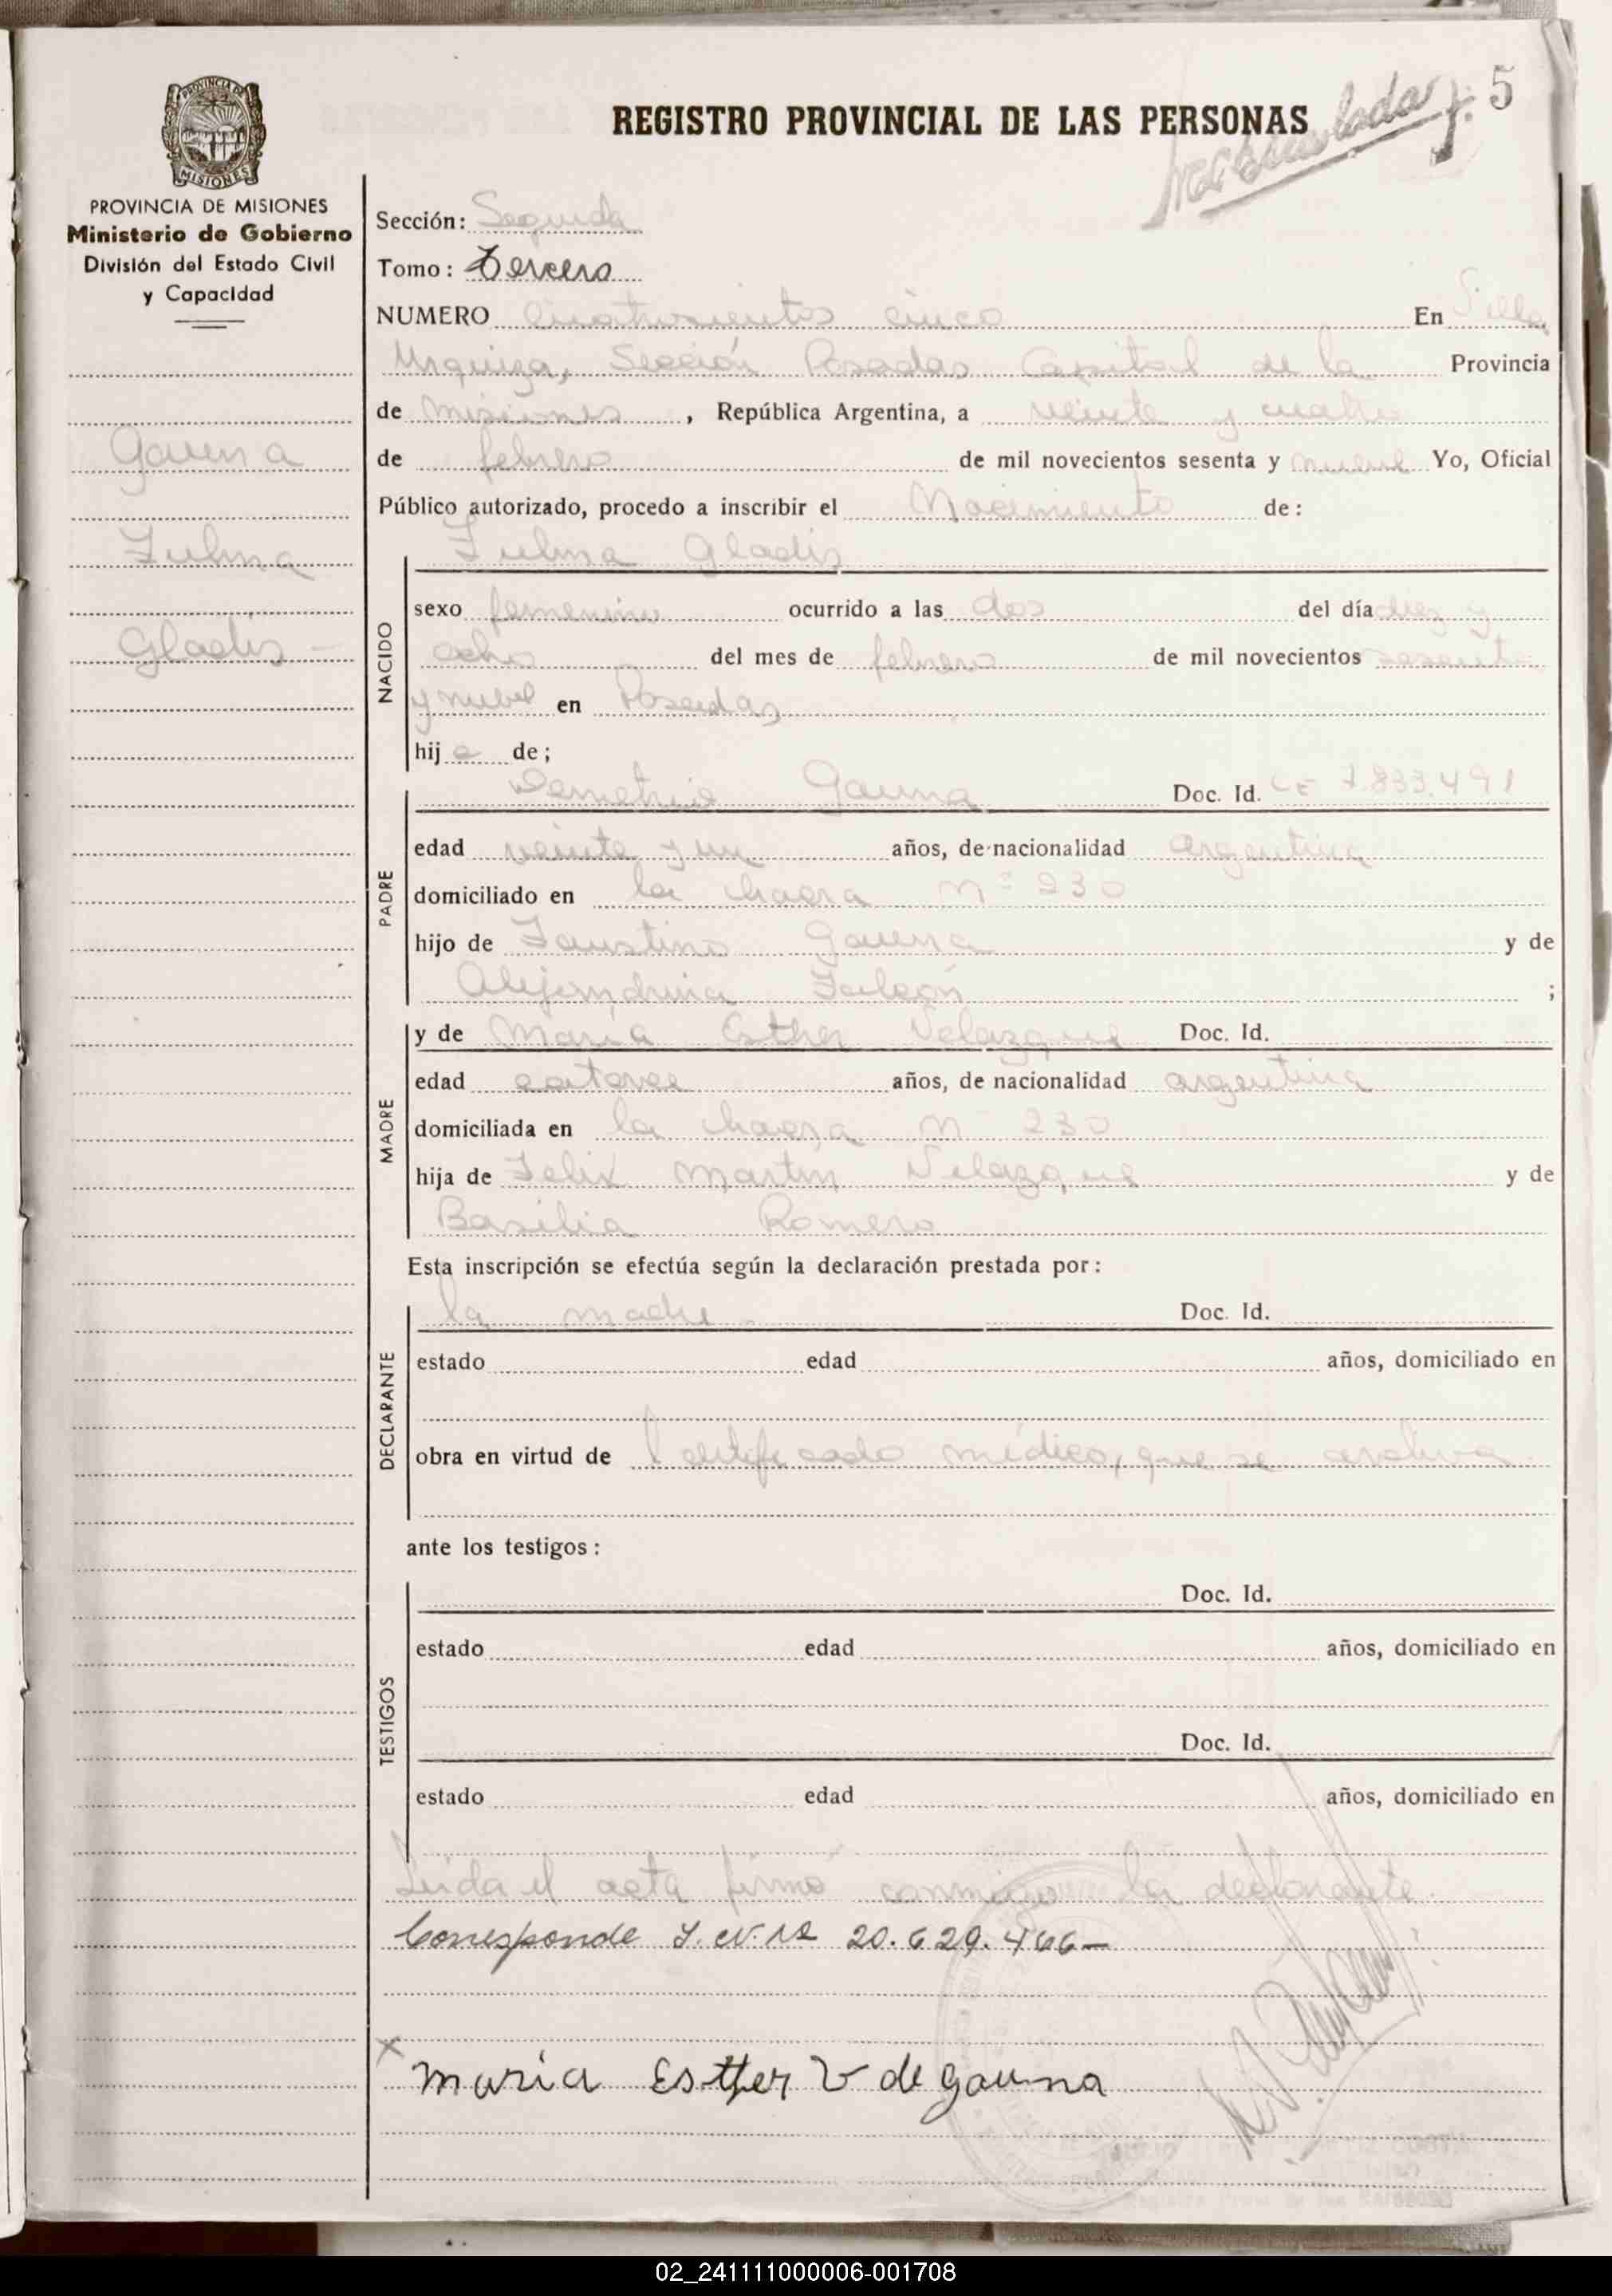 5
REGISTRO PROVINCIAL DE LAS PERSONAS
PROVINCIA DE MISIONES
PROVINCIA DE MISIONES
Ministerio de Gobierno
División del Estado Civil
y Capacidad
Gauna
Zulma
Gladis
Sección: Segunda
Tomo: Tercero
NUMERO Cuatrocientos cinco En Villa
Urquiza, Sección Posadas Capital de la Provincia
de Misiones, República Argentina, a veinte y cuatro
de febrero de mil novecientos sesenta y nueve Yo, Oficial
Público autorizado, procedo a inscribir el Nacimiento de:
Zulma Gladis
NACIDO
sexo femenino ocurrido a las dos del día diez y
ocho del mes de febrero de mil novecientos sesenta
y nueve en Posadas
hija de;
PADRE
Demetrio Gauna Doc. Id. CE 7.833.491
edad veinte y un años, de nacionalidad argentina
domiciliado en la chacra nº 230
hijo de Faustino Gauna y de
Alejandrina Falcón ;
MADRE
y de María Esther Velazque Doc. Id.
edad catorce años, de nacionalidad argentina
domiciliada en la chacra n 230
hija de Felix Martín Velazque y de
Basilia Romero
Esta inscripción se efectúa según la declaración prestada por:
DECLARANTE
la madre Doc. Id.
estado edad años, domiciliado en
obra en virtud de Certificado médico, que se archiva
ante los testigos:
TESTIGOS
Doc. Id.
estado edad años, domiciliado en
Doc. Id.
estado edad años, domiciliado en
Leida el acta firmó conmigo la declarante.
Corresponde 20.629.466-
x
maria Esther V de gauna
02_241111000006-001708